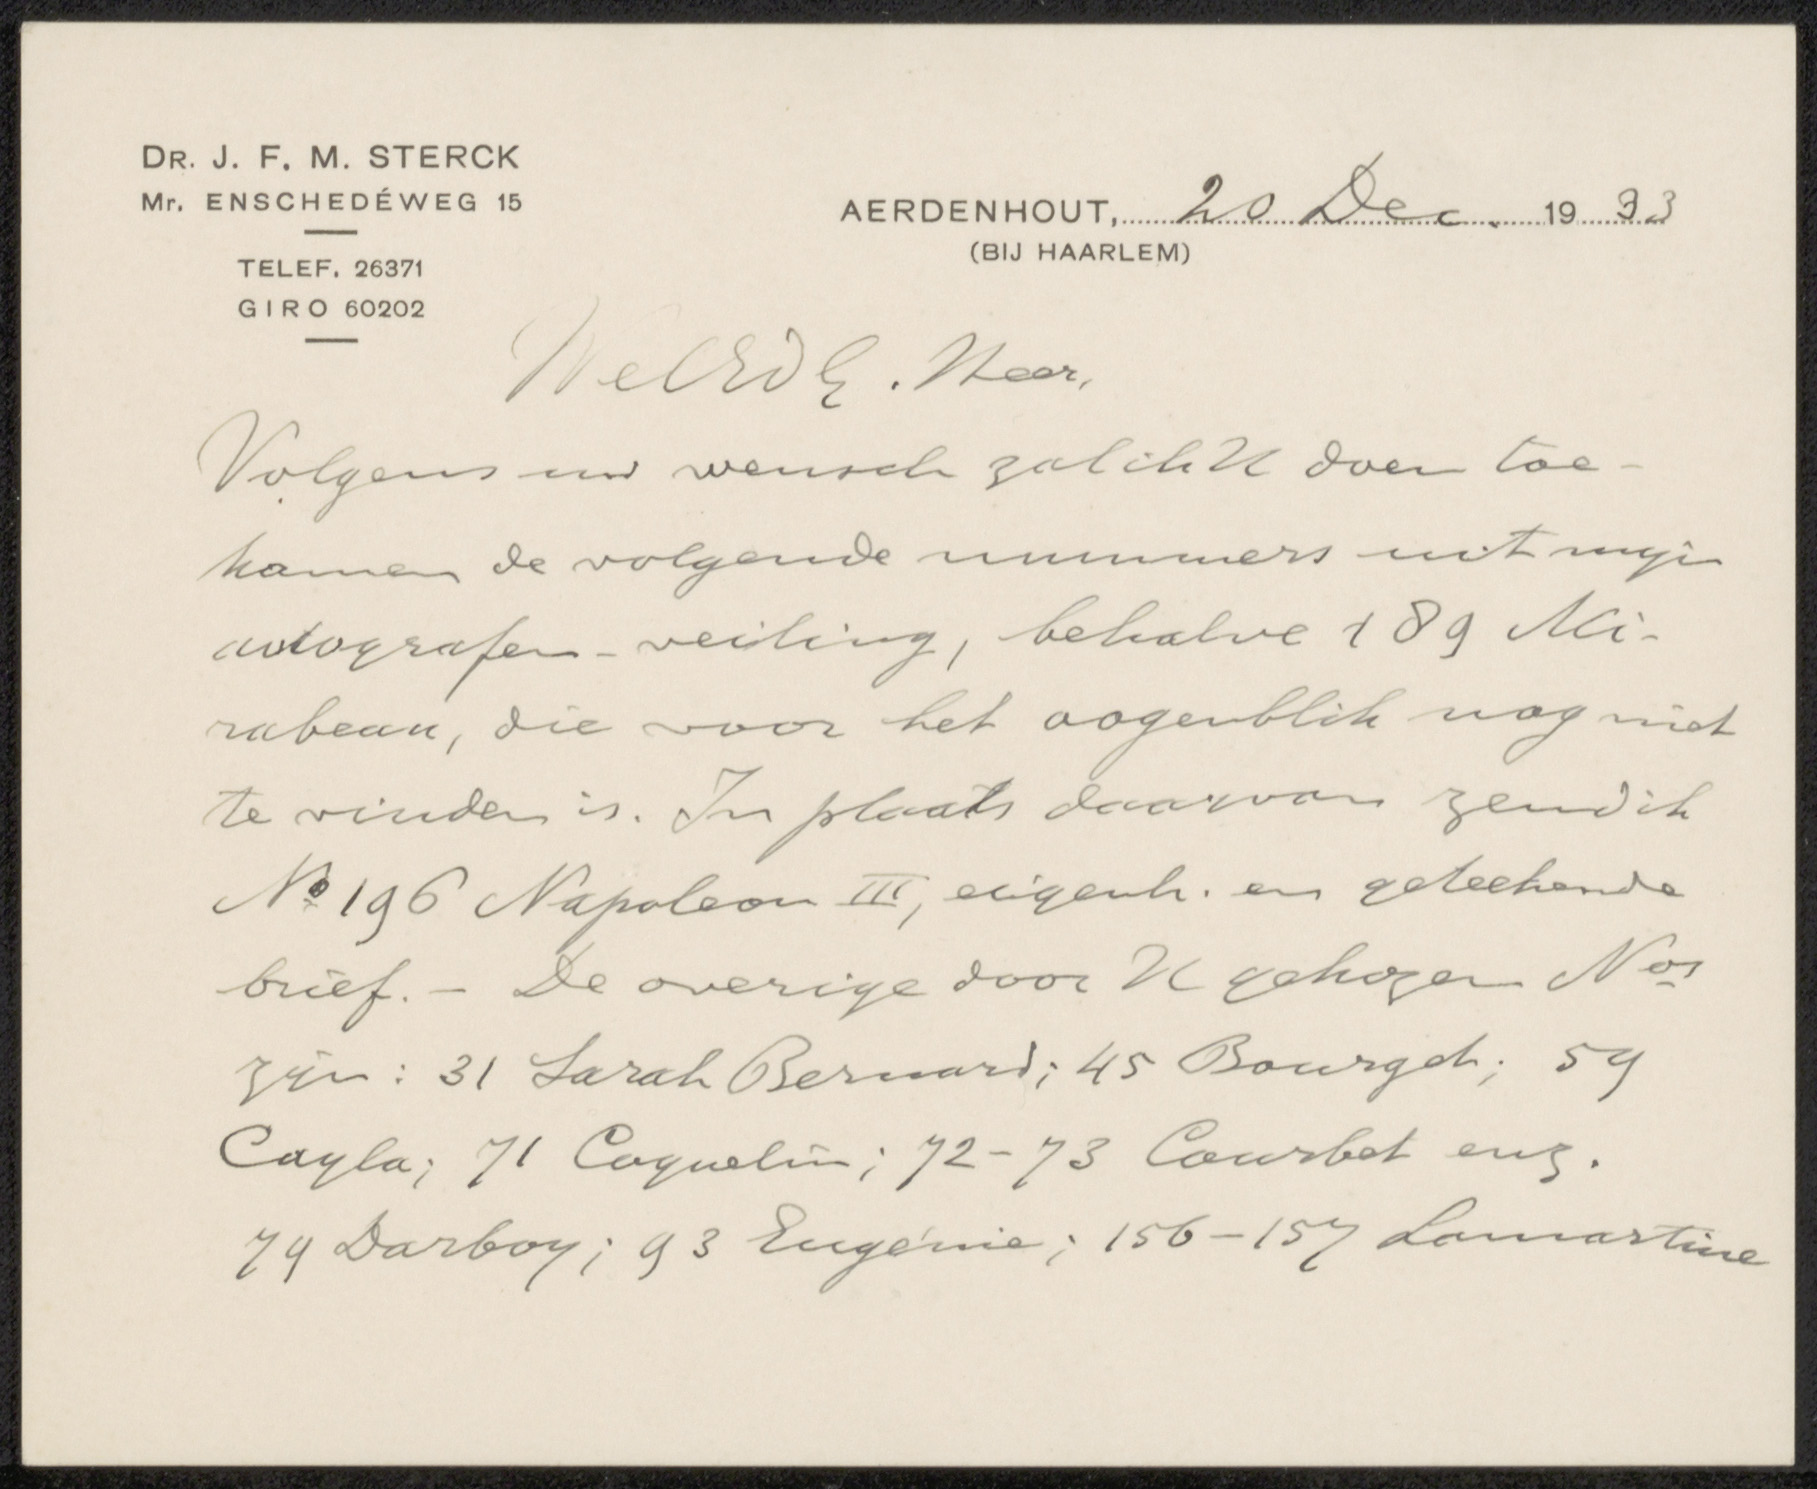 DR. J. F. M. STERCK
Mr. ENSCHEDÉWEG 15
TELEF. 26371
GIRO 60202
AERDENHOUT, 20 Dec. 1933
(BIJ HAARLEM)
WelEdG. Heer,
Volgens uw wensch zal ik U doen toe-
komen de volgende nummers uit mijn
autografen-veiling, behalve 189 Mi-
rabeau, die voor het oogenblik nog niet
te vinden is. In plaats daarvan zend ik
No 196 Napoleon III, eigenh. en geteekende
brief. - De overige door U gekozen Nos
zijn: 31 Sarah Bernard; 45 Bourget; 59
Cayla; 71 Coquelin; 72-73 Courbet enz.
79 Darboy; 93 Eugénie; 156-157 Lamartine